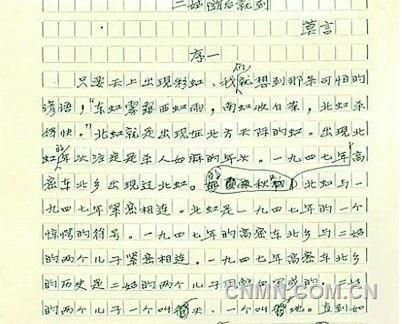 二姑随后就到
莫言
序一
只要天上出现彩虹，我们就想到那条可怕的
谚语，“东虹雾露西虹雨，南虹收白菜，北虹杀
得快。”北虹就是出现在北方天际的虹。出现北
虹的年头注定是杀人如麻的年头。一九四七年高
密东北乡出现过北虹。的北虹与一
九四七年紧密相连。北虹是一九四七年的一个
惊愕的符号。一九四七年的高密东北乡与二姑
的两个儿子紧密相连。一九四七年高密东北乡
的历史是二姑的两个儿子
的两个儿子一个叫天，一个叫地。直到如
CNMN.COM.CN